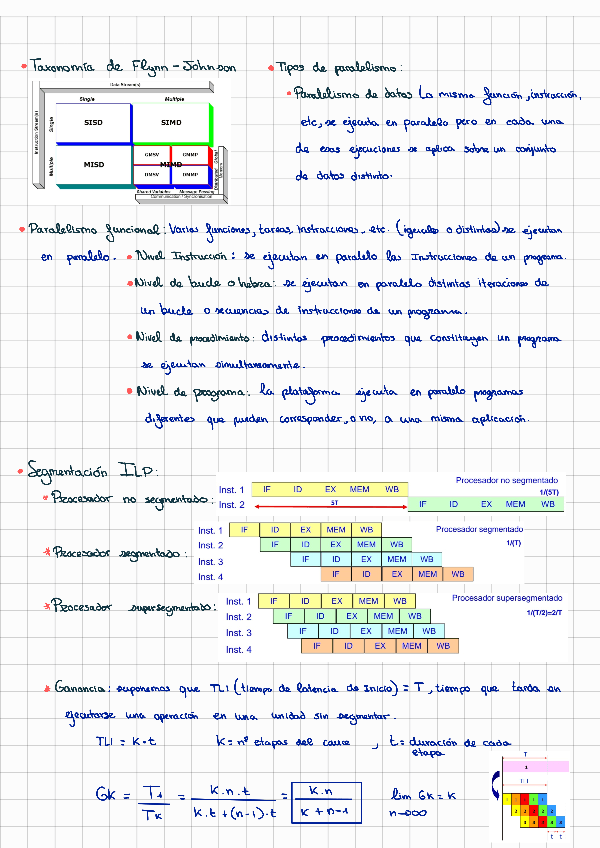 • Taxonomía de Flynn-Johnson
Data Stream(s)
Single Multiple
Instruction Stream(s)
Single
Multiple
SISD SIMD
MISD MIMD
GMSV GMMP
DMSV DMMP
Global
Shared Variables Message Passing
Communication / Synchronisation
• Tipos de paralelismo:
• Paralelismo de datos La misma función, instrucción,
etc, se ejecuta en paralelo pero en cada una
de esas ejecuciones se aplica sobre un conjunto
de datos distinto.
• Paralelismo funcional: Varias funciones, tareas, instrucciones, etc. (iguales o distintas) se ejecutan
en paralelo. • Nivel Instrucción: se ejecutan en paralelo las Instrucciones de un programa.
• Nivel de bucle o hebra: se ejecutan en paralelo distintas iteraciones de
un bucle o secuencias de instrucciones de un programa.
• Nivel de procedimiento: distintos procedimientos que constituyen un programa
se ejecutan simultaneamente.
• Nivel de programa: la plataforma ejecuta en paralelo programas
diferentes que pueden corresponder, o no, a una misma aplicación.
• Segmentación ILP:
* Procesador no segmentado:
Procesador no segmentado
Inst. 1 IF ID EX MEM WB 1/(5T)
Inst. 2 5T IF ID EX MEM WB
* Procesador segmentado:
Inst. 1 IF ID EX MEM WB Procesador segmentado
Inst. 2 IF ID EX MEM WB 1/(T)
Inst. 3 IF ID EX MEM WB
Inst. 4 IF ID EX MEM WB
* Procesador supersegmentado:
Inst. 1 IF ID EX MEM WB Procesador supersegmentado
Inst. 2 IF ID EX MEM WB 1/(T/2)=2/T
Inst. 3 IF ID EX MEM WB
Inst. 4 IF ID EX MEM WB
* Ganancia: suponemos que TLI (tiempo de latencia de Inicio) = T, tiempo que tarda en
ejecutarse una operación en una unidad sin segmentar.
TLI = K·t K = nº etapas del cauce , t = duración de cada
etapa
GK = T1/TK = K.n.t / K.t + (n-1).t = K.n / K + n-1 lim GK = K
n→∞
T
1
TLI
t t